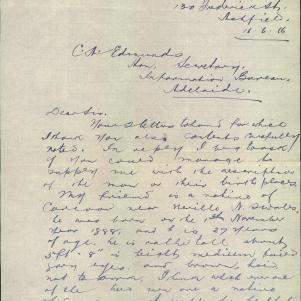 130 Frederick St,
Ashfield.
18.6.16
C. A. Edmunds
Hon. Secretary.
Information Bureau.
Adelaide.
Dear Sir.
Your letter to hand for which
I thank you also contents carefully
noted. In reply I was
if you could manage to
supply me with the description
of the man or their birth places
My friend is a native of
Carcoar near Neville N. S. Wales
he was born on the 1st November
Year 1888, and is 27 years
of age. he is rather tall about
5ft "8" is medium
grey eyes, and brown hair
not to
of